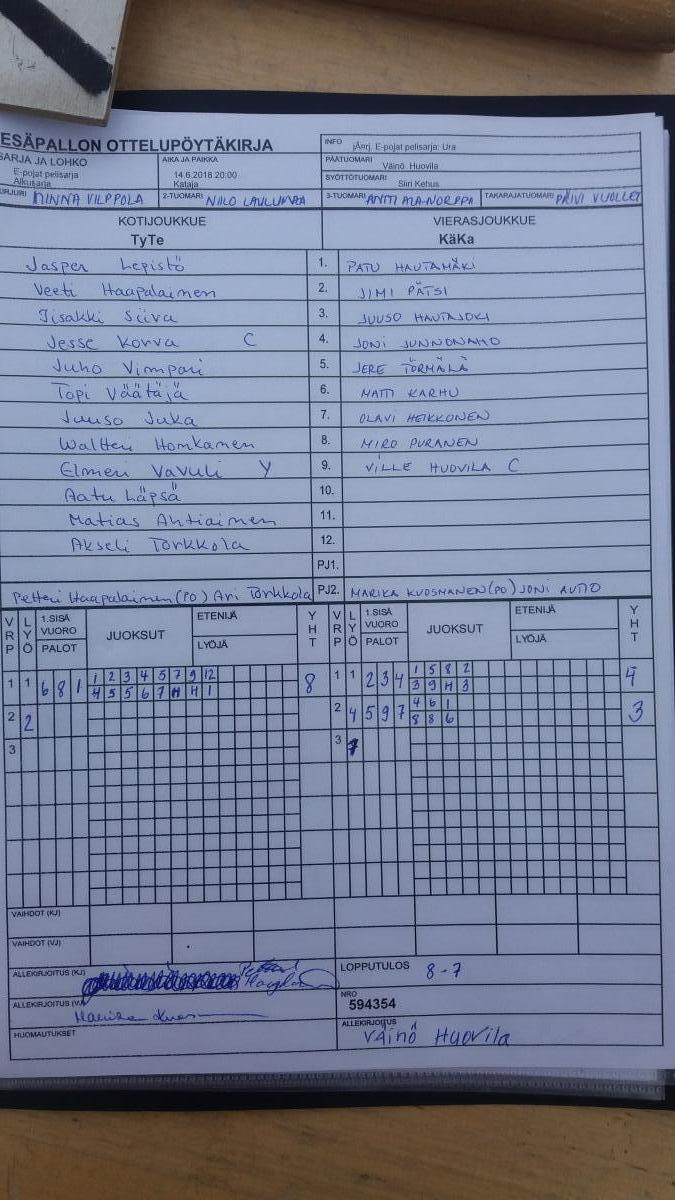 ESÄPALLON OTTELUPÖYTÄKIRJA
INFO jÄnrj. E-pojat pelisarja: Ura
SARJA JA LOHKO
E-pojat pelisarja
Alkusarja
AIKA JA PAIKKA
14.6.2018 20:00
Kataja
PÄÄTUOMARI Väinö Huovila
SYÖTTÖTUOMARI Siiri Kehus
MINNA VILPPOLA
2-TUOMARI NIILO
3-TUOMARI ANTTI ALA-NORPPA
TAKARAJATUOMARI PÄIVI
KOTIJOUKKUE VIERASJOUKKUE
TyTe KäKa
Jasper Lepistö 1. PATU HAUTAMÄKI
Veeti Haapalainen 2. JIMI PÄTSI
Iisakki Siiva 3. JUUSO HAUTAJOKI
Jesse Korva C 4. JONI JUNNONAHO
Juho Vimpari 5. JERE TÖRMÄLÄ
Topi Väätäjä 6. MATTI KARHU
Juuso Juka 7. OLAVI HEIKKONEN
Waltteri Honkanen 8. MIRO PURANEN
Elmeri Vavuli Y 9. VILLE HUOVILA C
Aatu Läpsä 10.
Matias Ahtiainen 11.
Akseli Torkkola 12.
PJ1.
Petteri Haapalainen (PO) Ari Torkkola PJ2. MARIKA KUOSMANEN (PO) JONI AUTIO
VRP LYÖ 1.SISÄ VUORO PALOT JUOKSUT ETENIJÄ LYÖJÄ YHT VRP LYÖ 1.SISÄ VUORO PALOT JUOKSUT ETENIJÄ LYÖJÄ YHT
1 1 6 8 1 1 2 3 4 5 7 9 12 8 1 1 2 3 4 1 5 8 2 4
4 5 5 6 7 H H 1 3 9 H 3
2 2 2 4 5 9 7 4 6 1 3
8 8 6
3 3 7
VAIHDOT (KJ)
VAIHDOT (VJ)
ALLEKIRJOITUS (KJ)
LOPPUTULOS 8-7
ALLEKIRJOITUS
NRO
594354
HUOMAUTUKSET
ALLEKIRJOITUS
Väinö Huovila